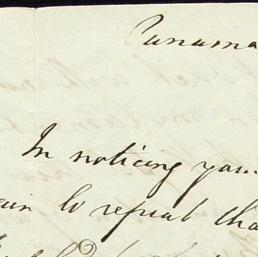 Panama
In noticing your
to repeat tha